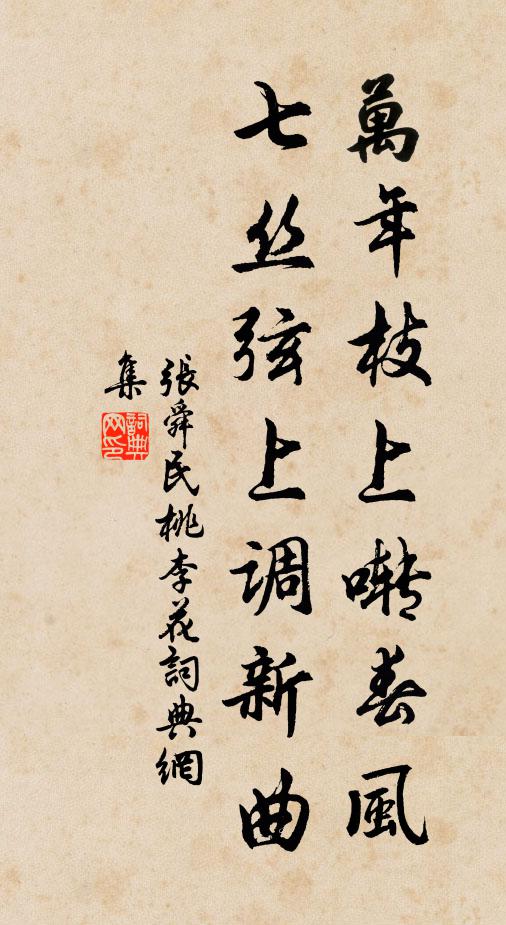 萬年枝上啭春風
七丝弦上调新曲
張舜民桃李花詞典網
集
詞典
网印